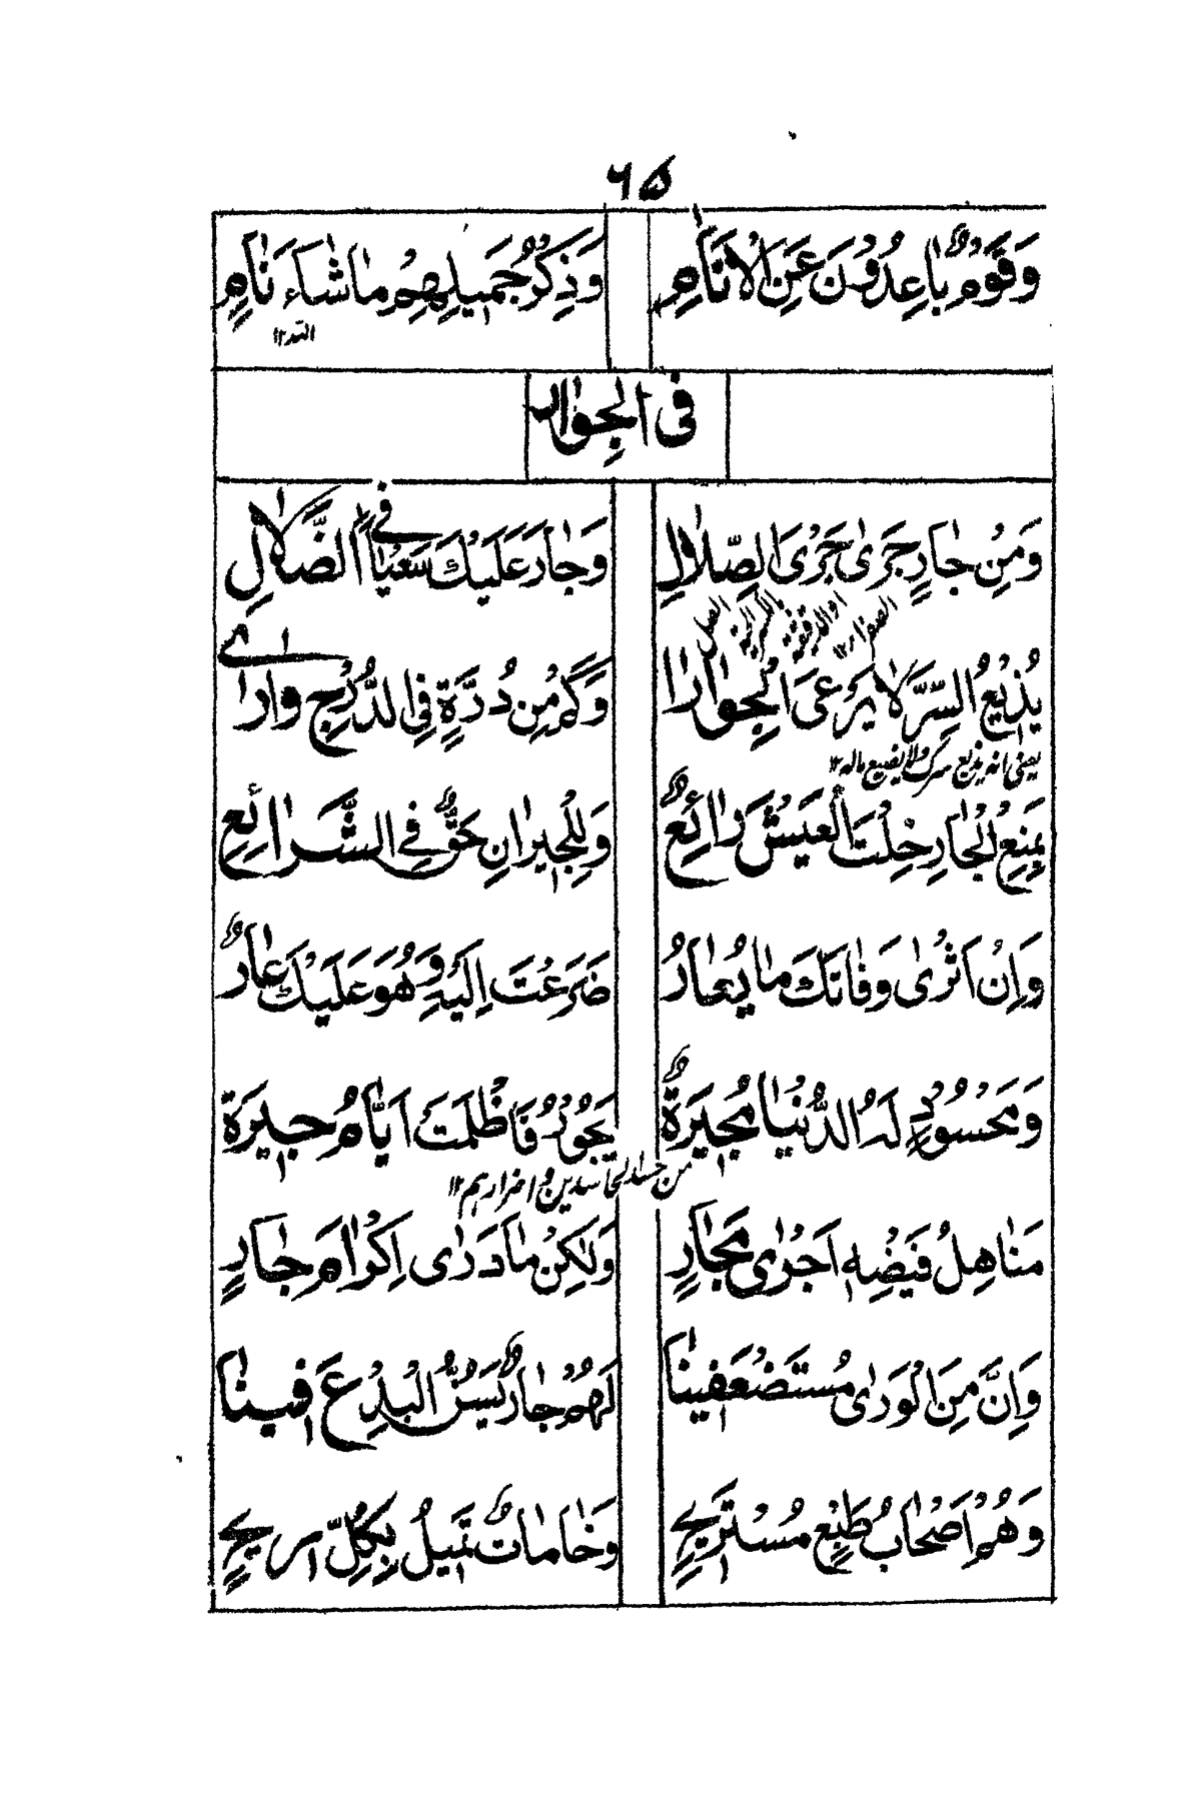 ٦٥
وَقَوْمٌ بَاعِدُوْنَ عَنِ الْاَنَامِ وَذِكْرُ جَمِيلِهِمْ مَاشَاءَ نَامٍ
اللہ ١٢
فی الجِوار
وَمِنْ جَارٍ جَرٰى جَرْىَ الصِّلَالِ وَجَارَ عَلَيْكَ سَعْيًا فِي الضَّلَالِ
يُذِيْعُ السِّرَّ لَا يَرْعَى الْجِوَارَا وَكَمْ مِنْ دُرَّةٍ فِي الدُّرْجِ وَارَاى
يعنى انه يذيع سرك ولا يضيع ماله ١٢
بِمَنِيْعِ الْجَارِ خِلْتَ الْعَيْشَ رَائِعٌ وَلِلْجِيْرَانِ حَقٌّ فِي الشَّرَائِعِ
وَاِنْ اَثْرٰى وَفَاتَكَ مَا يُعَارُ ضَرَعْتَ اِلَيْهِ وَهُوَ عَلَيْكَ عَارٌ
وَمَحْسُوْدٍ لَهُ الدُّنْيَا مُجِيْرَةٌ يَجُوْرُ فَاَظْلَمَتْ اَيَّامُ جِيرَةٍ
من حسد الحاسدين واضرارهم ١٢
مَنَاهِلُ فَيْضِهِ اَجْرٰى مَجَارٍ وَلٰكِنْ مَا دَرٰى اِكْرَامَ جَارٍ
وَاِنَّ مِنَ الْوَرٰى مُسْتَضْعَفِينَا لَهُمْ جَارٌ يَسُنُّ الْبِدْعَ فِينَا
وَهُمْ اَصْحَابُ طَبْعٍ مُسْتَرِيْحٍ وَخَامَاتٌ تَمِيلُ بِكُلِّ رِيحٍ